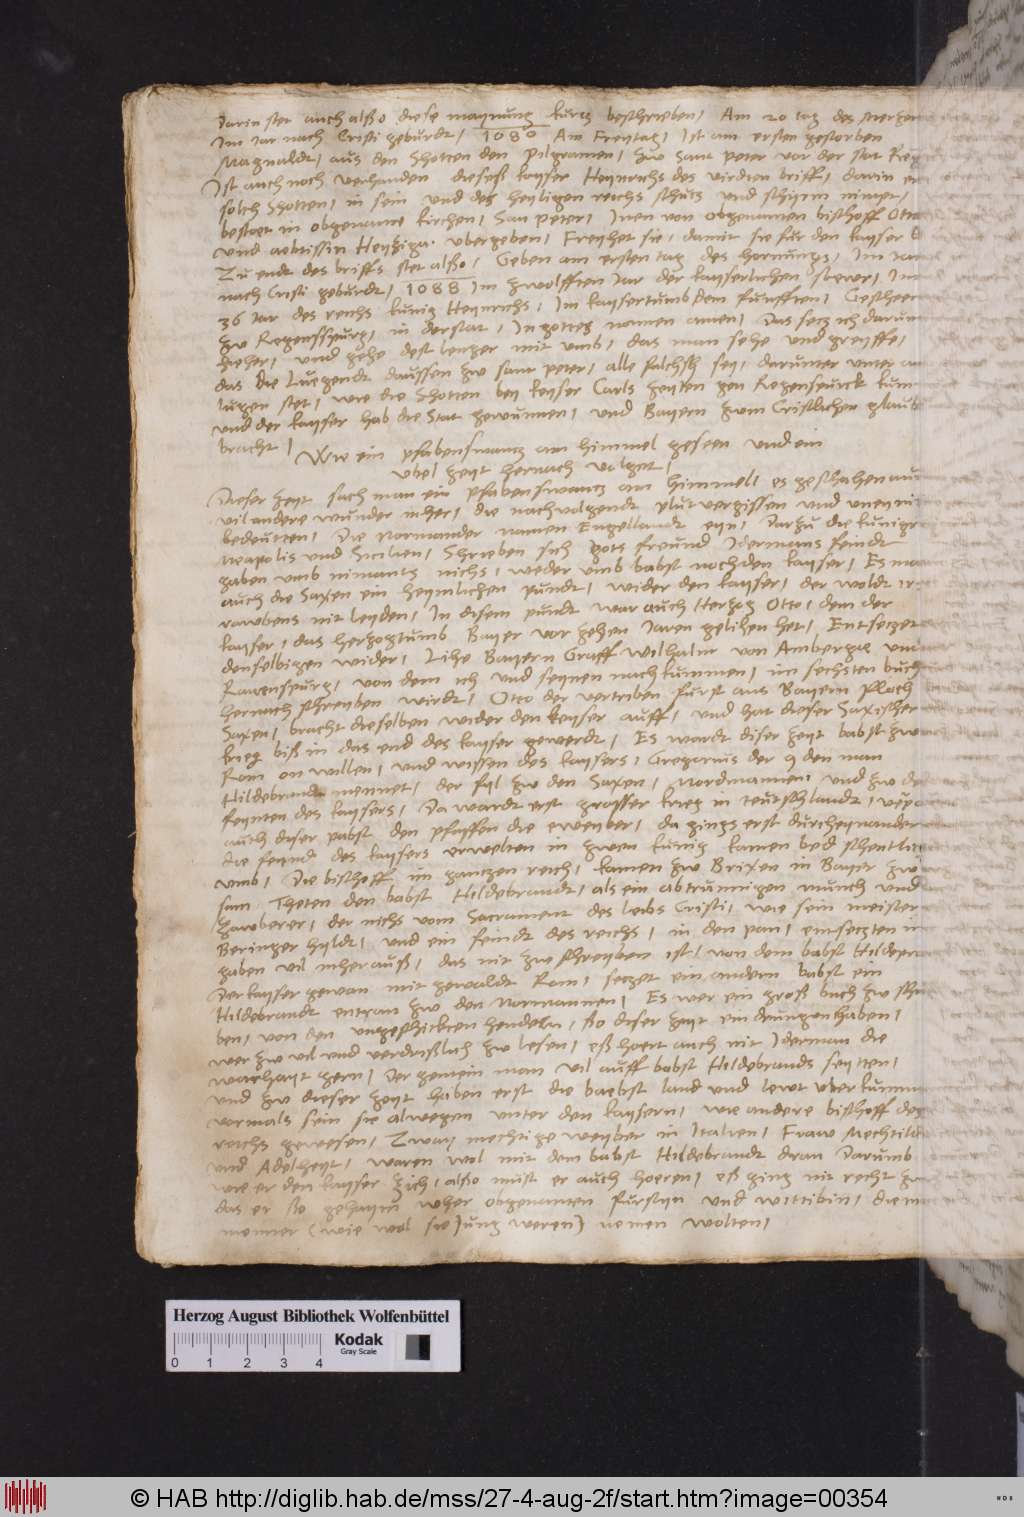 Darin stet auch alßo diese maynung kurtz beschrieben, Am 20 tag des Mertzen
Im Jar nach Cristi geburdt, 1080 Am Freytag, Ist am ersten gestorben
Magnaldt, aus den Shotten den Pilgramen, hzw Sant Peter vor der stat
Ist auch noch verhanden dieses kayser Heynrichs des virdten briff, darin
solch Shotten, in sein und des heyligen reichs schutz und schirm nimpt,
bestett in obgenante kirchen, San Peter, Inen von obgenanten bisthoff
und aebtissin Heyziga vbergeben, Freyhet sie, damit sie für den kayser
Zu endt des briffs stet alßo, Geben am ersten tag des hornungs, Im Jar
nach Cristi geburdt, 1088 Im zwolfften Jar der kayserlichen
36 Jar des reichs kunig Heynrichs, Im kaysertumb dem funfften,
zw Regenspurg, in der stat, In gottes namen amen, Das setz ich darumb
hieher, und gehe dest lenger mit umb, das man sehe und greyffe,
das die Luegendt daussen zw sant peter, alle falsch sey, darunter unter
lugen stet, wie die Shotten bey keyser Carls zeyten gen Regenspurck
und der kayser hab die Stat gewunnen, und Bayern zwm Cristlichen
bracht,
Wie ein pfabenswantz am himmel geseen und ein
vbel zeyt hernach volget,
Dieser zeyt sach man ein pfabenswantz am himmell es geschahen
vil andere wunder mher, die nachvolgendt plutvergissen und
bedeutten, Die Normander namen Engellandt eyn, Darzu die
Neapolis und Sicilien, Schrieben sich gots freund Idermans feindt
gaben umb nimants nichs, weder umb babst noch den kayser, Es
auch die Saxen ein heymlichen pundt, wider den kayser, der woldt
rawbens nit leyden, In disem pundt war auch Hertzog Otto, dem der
kayser, das hertzogtumb Bayer vor zehen Jaren gelihen het, Entsetzet
denselbigen wider, Lihe Bayern Graff Wilhalm von Ambergaw
Ravenspurg, von dem ich und seynen nachkummen, im sechsten buch
hernach schreyben wirdt, Otto der vertriben fürst aus Bayern
Saxen, bracht dieselben wider den keyser auff, und hat dieser Saxischer
krieg biß in das end des kayser gewerdt, Es wardt diser zeyt babst zw
Rom on willen, und wissen des kaysers, Gregorius der 9 den man
Hildebrandt nennet, der fyl zw den Saxen, Nordmannen, und zw
feynten des kaysers, Da wardt erst grosser krieg in teutschlandt,
auch diser pabst den pfaffen die eweyber, da gings erst durcheynander
die feynd des kaysers erwelten in zwen kunig kamen bed
umb, Die bisthoff im gantzen reich, kamen zw Brixen in Bayer zw
sam Theten den babst Hildebrandt, als ein abtrunnigen munch und
zawberer, der nichs vom Sacrament des leibs Cristi, wie sein meister
Beringer hyldt, und ein feindt des reichs, in den pan, einsetzten
gaben vil mher auß, das nit zw schreyben ist, von dem babst
Der kayser gewan mit gewaldt Rom, setzet ein andern babst ein
Hildebrandt entran zw den Normannen, Es wer ein groß buch zw
ben, von den ungeschickten hendeln, so diser zeyt eindrungen haben,
wer zw vil und verdrißlich zw lesen, eß hoert auch nit Iderman die
warhayt gern, Der gemein man vil auff babst Hildebrands seytten,
und zw dieser zeyt haben erst die baebst land und lewt vberkumm
vormals sein sie alwegen unter den kaysern, wie andere bisthoff des
reichs gewesen, Zway mechtige weyber in Italien, Fraw Mechtild
und Adelheyt, waren wol mit dem babst Hildebrandt dran Darumb
wie er den kayser zich, alßo must er auch hoeren, eß ging nit recht
das er so gehaym wher obgenanten furstyn und wittibin, die
menner (wie wol sie Jung weren) nemen wolten,
Herzog August Bibliothek Wolfenbüttel
Kodak
Gray Scale
0 1 2 3 4
© HAB http://diglib.hab.de/mss/27-4-aug-2f/start.htm?image=00354